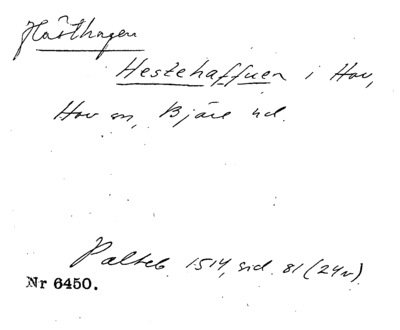 Hästhagen
Hestehaffuen i Hov,
Hov sn, Bjäre hd.
Palteb. 1514, sid. 81 (24v).
Nr 6450.